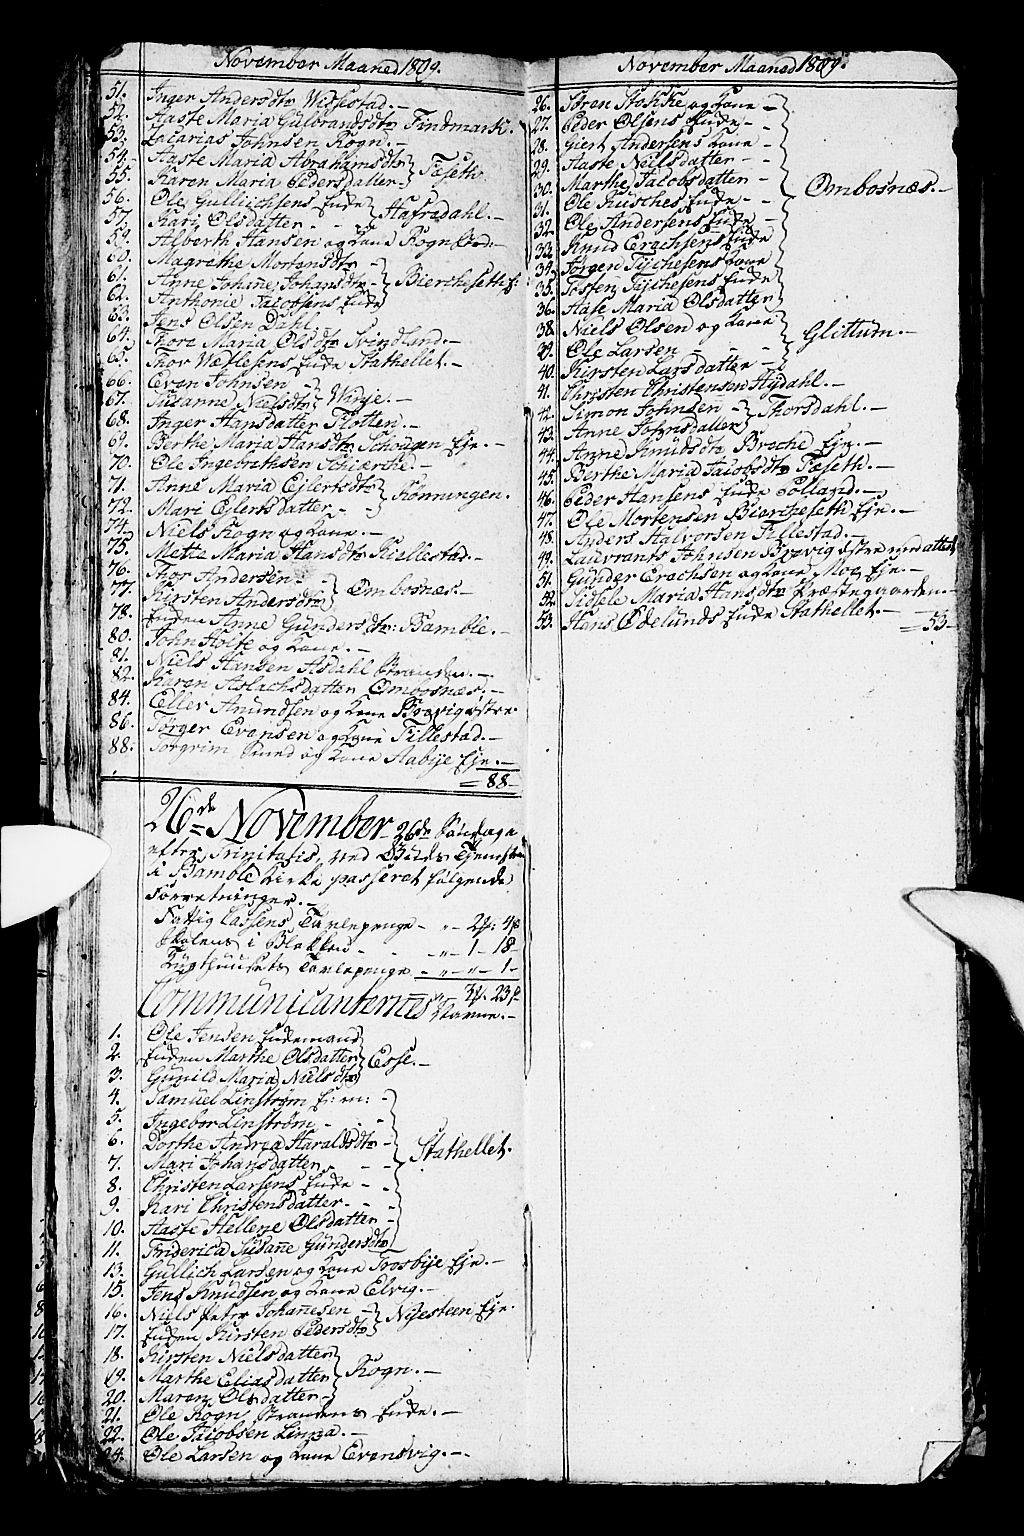 November Maaned 1809.
51. Inger Andersdtr Wissestad.
52. Aaste Maria Gulbrandsdtr Findmark.
53. Zacarias Johnsen Rogn.
54. Aaste Maria Abrahamsdtr
55. Karen Maria Pedersdatter Fæseth
56. Ole Gullichsens Enke
57. Kari Olsdatter Hafredahl.
59. Alberth Hansen og Kone Rogn
60. Magrethe Mortensdtr
61. Anne Johane Johansdtr Biercheseth Ej:
62. Anthonie Jacobsens Enke
63. Jens Olsen Dahl.
64. Thore Maria Olsdtr Svindland.
65. Thor Weflesens Enke Stathellet.
66. Even Johnsen
67. Susanne Nielsdtr Widye.
68. Inger Hansdatter Flotten.
69. Berthe Maria Hansdtr Schougen Eje.
70. Ole Ingebrethsen Schierke.
71. Anne Maria Ejlertsdtr
72. Mari Ejlertsdatter Rønningen.
74. Niels Rogn og Kone.
75. Mette Maria Hansdtr Kiellestad.
76. Thor Andersen
77. Kirsten Andersdtr Ombosnæs.
78. Enken Anne Gundersdtr: Bamble.
80. John Holte og Kone.
81. Niels Hansen Asdahl Stranden.
82. Karen Aslachsdatter Ombosnæs.
84. Eller Amundsen og Kone Brevig østre
86. Tørger Evensen og Kone Tillestad.
88. Torgrim Smed og Kone Aabye Eje.
= 88
26de November 26de Søndag
efter Trinitatis, ved Guds Tjeneste
i Bamble Kirke passeret følgende
Forretninger.
Fattig Cassens Tavlepenge - " - 2 - 4
Skolens i Blokken - " - 1 - 18
Tugthuusets Tavlepenge - " - " - 1
3 - 23
Communicanternes Navne.
1. Ole Jensen Enkemand
2. Enken Marthe Olsdatter Esse.
3. Gunild Maria Nielsdtr
4. Samuel Linstrøm E: m:
5. Ingebor Linstrøm
6. Dorthe Andrea Haraldsdtr
7. Mari Johansdatter Stathellet.
8. Christen Larsens Enke
9. Kari Christensdatter
10. Aaste Hellene Olsdatter
11. Friderica Susane Gundersdtr
13. Gullich Larsen og Kone Trosbye Eje.
15. Jens Knudsen og Kone Elvig.
16. Niels Peter Johanesen
17. Enken Kirsten Pedersdtr Nyesteen Eje.
18. Kirsten Nielsdatter
19. Marthe Eliasdatter Rogn.
20. Maren Olsdatter
21. Ole Rogn Strandens Enke.
22. Ole Jacobsen Linna.
24. Ole Larsen og Kone Evensvig.
November Maaned 1809.
26. Søren Stokke og Kone
27. Peder Olsens Enke
28. Giert Andersens Kone
29. Aaste Nielsdatter
30. Marthe Jacobsdatter Ombosnæs.
31. Ole Kusches Enke
32. Ole Andersens Enke
33. Knud Erachsens Enke
34. Jørgen Tychesens Kone
35. Tosten Tychesens Enke
36. Aase Maria Olsdatter
38. Niels Olsen og Kone
39. Ole Larsen Glittum.
40. Kirsten Larsdatter
41. Christen Christensen Hydahl.
42. Simon Johnsen
43. Anne Johnsdatter Thorsdahl.
44. Anne Knudsdtr Broche Eje.
45. Berthe Maria Jacobsdtr Fæseth.
46. Peder Hansens Enke Tolland.
47. Ole Mortensen Bierchesetn Eje.
48. Anders Halvorsen Tillestad.
49. Laurants Johnsen Brevig østre med attest
51. Gunder Erachsen og Kone Moe Eje.
52. Sidsele Maria Hansdtr Præstegaarden.
53. Hans Edelunds Enke Stathellet.
= 53